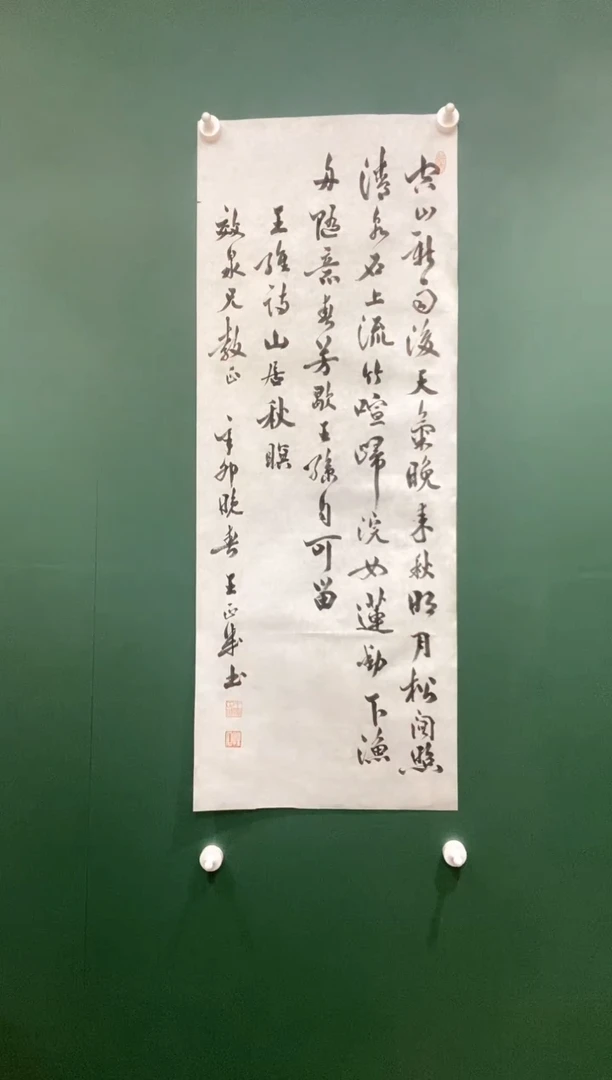 空山新雨後天氣晚來秋明月松間照
清泉石上流竹喧歸浣女蓮動下漁
舟隨意春芳歇王孫自可留
王維詩山居秋暝
效泉兄教正 辛卯晚春 王正成書